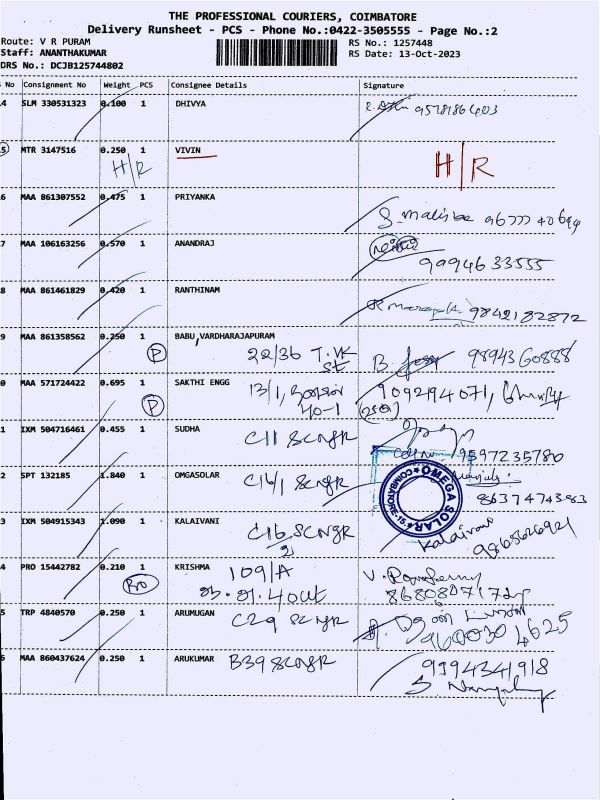 THE PROFESSIONAL COURIERS, COIMBATORE
Delivery Runsheet - PCS - Phone No.:0422-3505555 - Page No.:2
Route: V R PURAM RS No.: 1257448
Staff: ANANTHAKUMAR RS Date: 13-Oct-2023
DRS No.: DCJB125744802
S No Consignment No Weight PCS Consignee Details Signature
4 SLM 330531323 0.100 1 DHIVYA 9578186403
5 MTR 3147516 0.250 1 VIVIN
H/R H/R
6 MAA 861307552 0.475 1 PRIYANKA
7 MAA 106163256 0.570 1 ANANDRAJ
9994633555
8 MAA 861461829 0.420 1 RANTHINAM
9842182872
9 MAA 861358562 0.250 1 BABU,VARDHARAJAPURAM
P 22/36 T.VK St B. 9894360888
0 MAA 571724422 0.695 1 SAKTHI ENGG 13/1,
P 40-1 9092194071,
1 IXM 504716461 0.455 1 SUDHA C11 SCNGR
9597235780
2 SPT 132185 1.840 1 OMGASOLAR C16/1 SCNGR
OMEGA SOLAR COIMBATORE-15
86374743983
3 IXM 504915343 1.090 1 KALAIVANI C16/2 SCNGR
Kalaivani 9865626921
4 PRO 15442782 0.210 1 KRISHMA 109/A
Pro V.
5 TRP 4840570 0.250 1 ARUMUGAN C29 SCNGR
9600304625
6 MAA 860437624 0.250 1 ARUKUMAR B39 SCNGR
9394341918
S